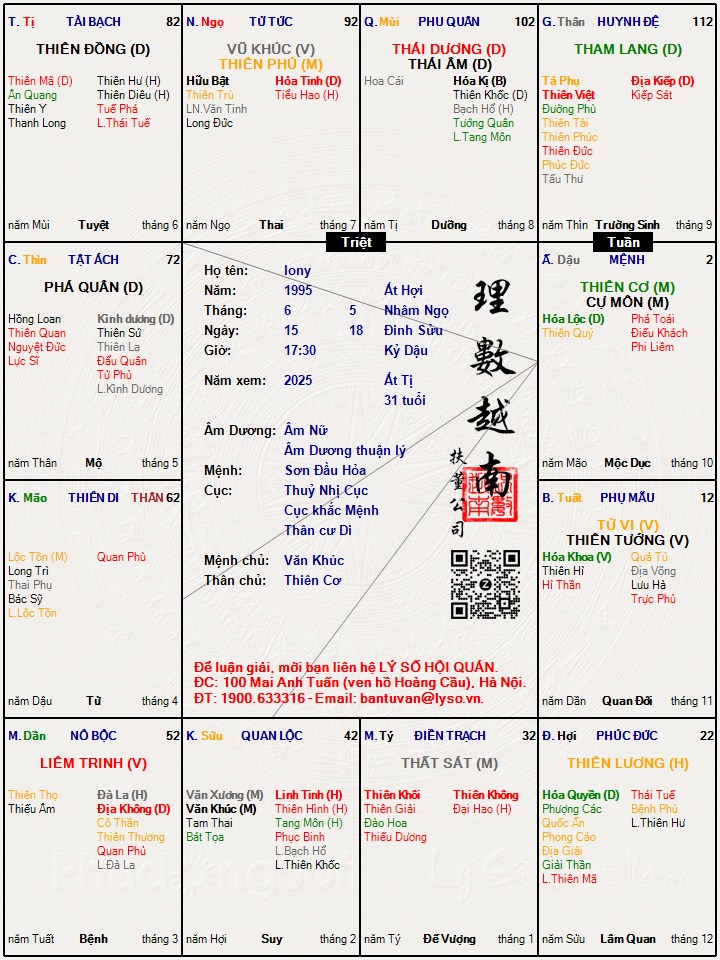 T. Tị TÀI BẠCH 82
THIÊN ĐỒNG (D)
Thiên Mã (D) Thiên Hư (H)
Ân Quang Thiên Diêu (H)
Thiên Y Tuế Phá
Thanh Long L.Thái Tuế
năm Mùi Tuyệt tháng 6
N. Ngọ TỬ TỨC 92
VŨ KHÚC (V)
THIÊN PHỦ (M)
Hữu Bật Hỏa Tinh (D)
Thiên Trù Tiểu Hao (H)
LN.Văn Tinh
Long Đức
năm Ngọ Thai tháng 7
Q. Mùi PHU QUÂN 102
THÁI DƯƠNG (D)
THÁI ÂM (D)
Hoa Cái Hóa Kị (B)
Thiên Khốc (D)
Bạch Hổ (H)
Tướng Quân
L.Tang Môn
năm Tị Dưỡng tháng 8
G. Thân HUYNH ĐỆ 112
THAM LANG (D)
Tả Phụ Địa Kiếp (D)
Thiên Việt Kiếp Sát
Đường Phù
Thiên Tài
Thiên Phúc
Thiên Đức
Phúc Đức
Tấu Thư
năm Thìn Trường Sinh tháng 9
Triệt
Tuần
C. Thìn TẬT ÁCH 72
PHÁ QUÂN (D)
Hồng Loan Kình dương (D)
Thiên Quan Thiên Sứ
Nguyệt Đức Thiên La
Lực Sĩ Đẩu Quân
Tử Phù
L.Kình Dương
năm Thân Mộ tháng 5
Họ tên: lony
Năm: 1995 Ất Hợi
Tháng: 6 5 Nhâm Ngọ
Ngày: 15 18 Đinh Sửu
Giờ: 17:30 Kỷ Dậu
Năm xem: 2025 Ất Tị
31 tuổi
Âm Dương: Âm Nữ
Âm Dương thuận lý
Mệnh: Sơn Đầu Hỏa
Cục: Thuỷ Nhị Cục
Cục khắc Mệnh
Thân cư Di
Mệnh chủ: Văn Khúc
Thân chủ: Thiên Cơ
理數越南
扶董公司
Để luận giải, mời bạn liên hệ LÝ SỐ HỘI QUÁN.
ĐC: 100 Mai Anh Tuấn (ven hồ Hoàng Cầu), Hà Nội.
ĐT: 1900.633316 - Email: bantuvan@lyso.vn.
Ấ. Dậu MỆNH 2
THIÊN CƠ (M)
CỰ MÔN (M)
Hóa Lộc (D) Phá Toái
Thiên Quý Điếu Khách
Phi Liêm
năm Mão Mộc Dục tháng 10
K. Mão THIÊN DI THÂN 62
Lộc Tồn (M) Quan Phù
Long Trì
Thai Phụ
Bác Sỹ
L.Lộc Tồn
năm Dậu Tử tháng 4
B. Tuất PHỤ MẪU 12
TỬ VI (V)
THIÊN TƯỚNG (V)
Hóa Khoa (V) Quả Tú
Thiên Hỉ Địa Võng
Hỉ Thần Lưu Hà
Trực Phù
năm Dần Quan Đới tháng 11
M. Dần NÔ BỘC 52
LIÊM TRINH (V)
Thiên Thọ Đà La (H)
Thiếu Âm Địa Không (D)
Cô Thần
Thiên Thương
Quan Phủ
L.Đà La
năm Tuất Bệnh tháng 3
K. Sửu QUAN LỘC 42
Văn Xương (M) Linh Tinh (H)
Văn Khúc (M) Thiên Hình (H)
Tam Thai Tang Môn (H)
Bát Tọa Phục Binh
L.Bạch Hổ
L.Thiên Khốc
năm Hợi Suy tháng 2
M. Tý ĐIỀN TRẠCH 32
THẤT SÁT (M)
Thiên Khôi Thiên Không
Thiên Giải Đại Hao (H)
Đào Hoa
Thiếu Dương
năm Tý Đế Vượng tháng 1
Đ. Hợi PHÚC ĐỨC 22
THIÊN LƯƠNG (H)
Hóa Quyền (D) Thái Tuế
Phượng Các Bệnh Phù
Quốc Ấn L.Thiên Hư
Phong Cáo
Địa Giải
Giải Thần
L.Thiên Mã
năm Sửu Lâm Quan tháng 12